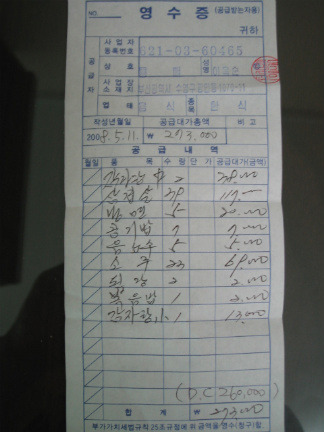 NO.
영수증 (공급받는자용)
귀하
공급자
사업자등록번호 621-03-60465
상호 성명
사업장소재지
업태 음식 한식
작성년월일 공급대가총액 비고
2008. 5. 11. ₩ 273,000
공급내역
월일 품목 수량 단가 공급대가(금액)
2 38.000
삼겹살 39 117.―
5 20.000
공기밥 7 7.000
음료수 5 5.000
소주 23 69.000
2 2.000
볶음밥 1 2.000
1 13.000
(D.C 260,000)
합계 ₩ 273.000
부가가치세법규칙 25조규정에 의 금액을 영수(청구)함.